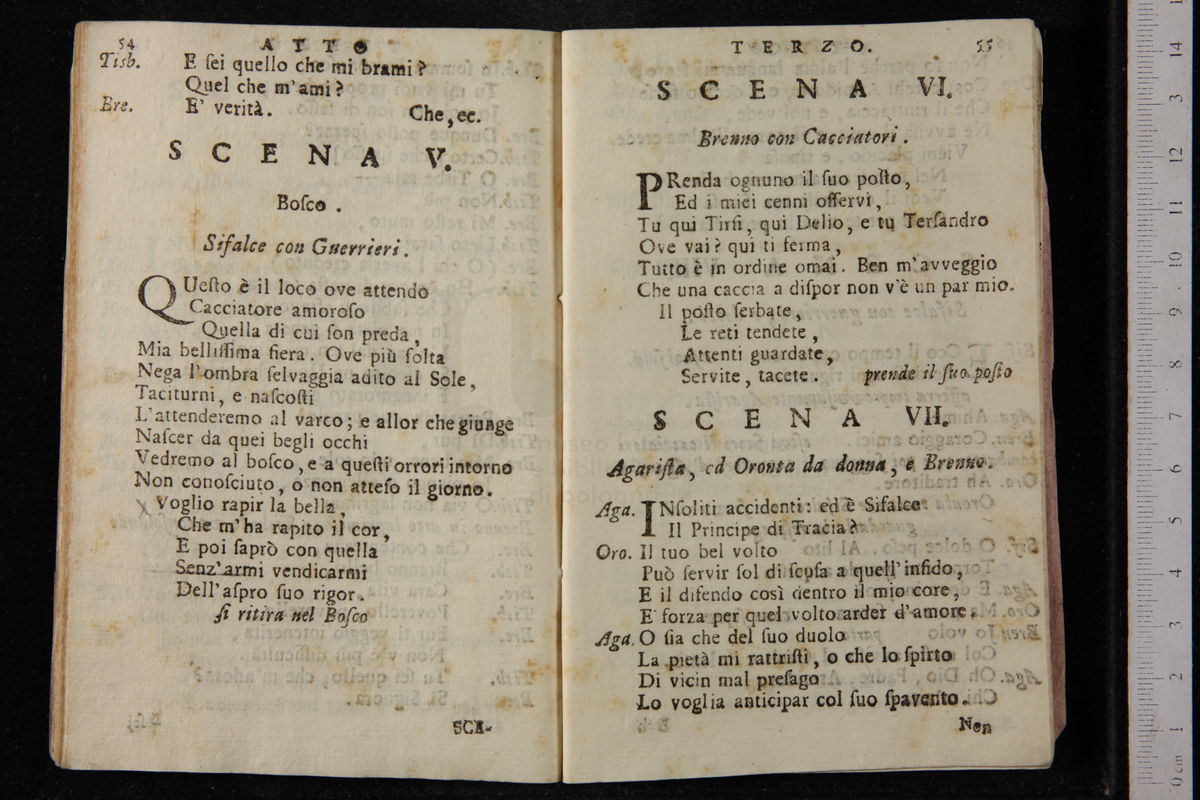 54
ATTO
Tisb. E sei quello che mi brami?
Quel che m'ami?
Bre. E' verità. Che, ec.
SCENA V.
Bosco.
Sifalce con Guerrieri.
QUesto è il loco ove attendo
Cacciatore amoroso
Quella di cui son preda,
Mia bellissima fiera. Ove più folta
Nega l'ombra selvaggia adito al Sole,
Taciturni, e nascosti
L'attenderemo al varco; e allor che giunge
Nascer da quei begli occhi
Vedremo al bosco, e a questi orrori intorno
Non conosciuto, o non atteso il giorno.
Voglio rapir la bella,
Che m'ha rapito il cor,
E poi saprò con quella
Senz'armi vendicarmi
Dell'aspro suo rigor.
si ritira nel Bosco
SCE-
TERZO.
55
SCENA VI.
Brenno con Cacciatori.
PRenda ognuno il suo posto,
Ed i miei cenni osservi,
Tu qui Tirsi, qui Delio, e tu Tersandro
Ove vai? qui ti ferma,
Tutto è in ordine omai. Ben m'avveggio
Che una caccia a dispor non v'è un par mio.
Il posto serbate,
Le reti tendete,
Attenti guardate,
Servite, tacete. prende il suo posto
SCENA VII.
Agarista, ed Oronta da donna, e Brenno.
Aga. INsoliti accidenti: ed è Sifalce
Il Principe di Tracia?
Oro. Il tuo bel volto
Può servir sol di scusa a quell'infido,
E il difendo così dentro il mio core,
E' forza per quel volto arder d'amore.
Aga. O sia che del suo duolo
La pietà mi rattristi, o che lo spirto
Di vicin mal presago
Lo voglia anticipar col suo spavento.
Non
14
13
12
11
10
9
8
7
6
5
4
3
2
1
0 cm